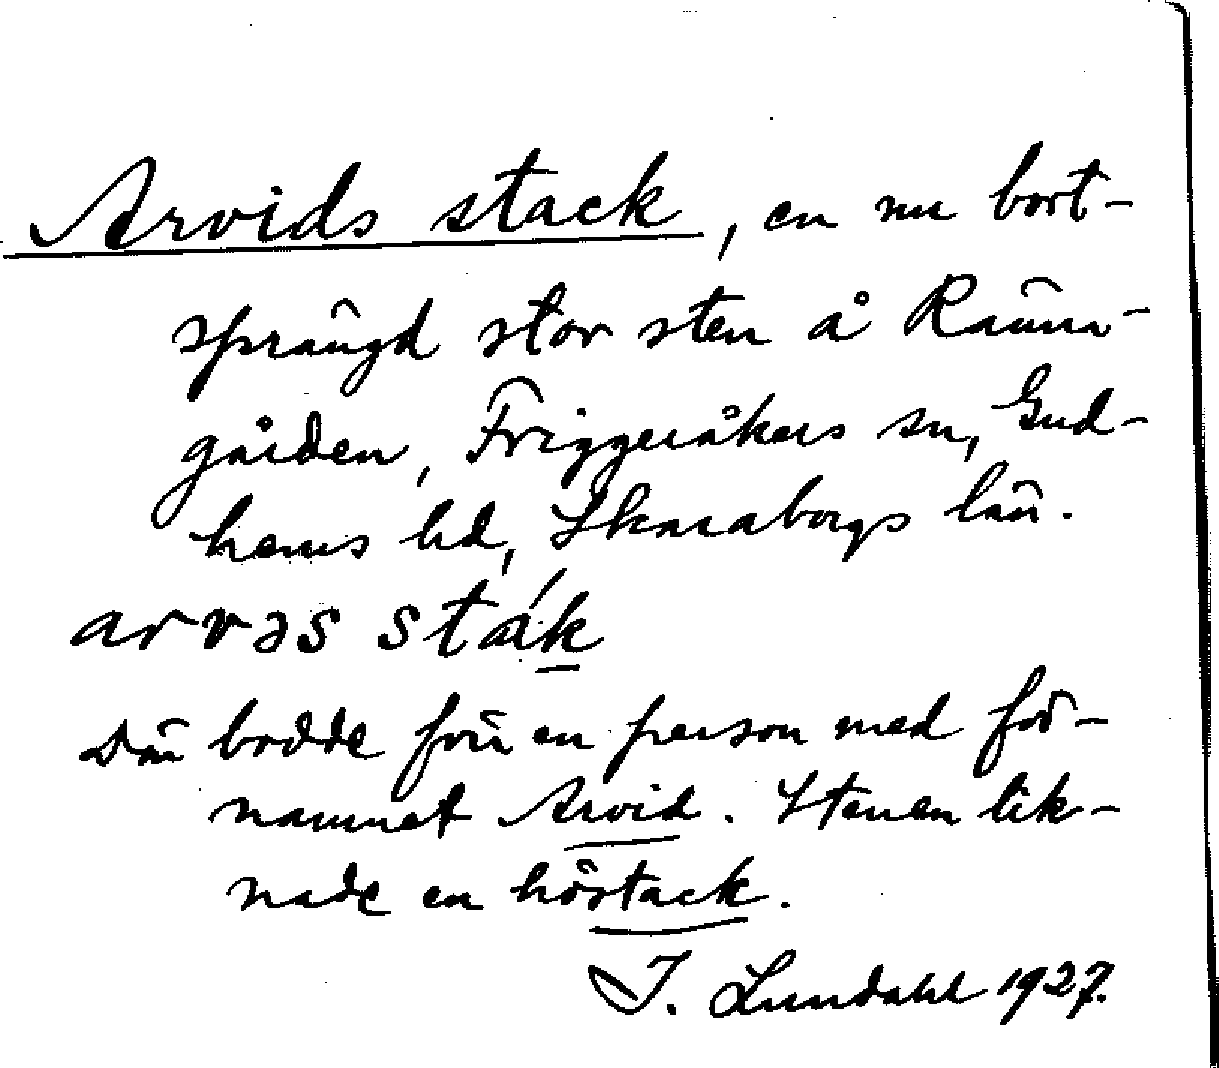 Arvids stack, en nu bort-
sprängd stor sten å Ränn-
gården, Friggeråkers sn, Gud-
hems hd, Skaraborgs län.
arvəs sták
Där bodde förr en person med för-
namnet Arvid. Stenen lik-
nade en höstack.
I. Lundahl 1927.